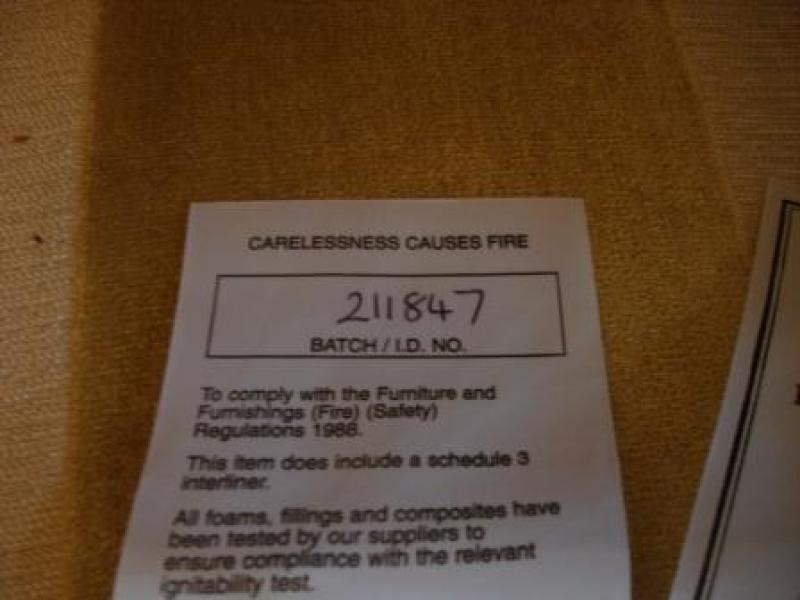 CARELESSNESS CAUSES FIRE
211847
BATCH / I.D. NO.
To comply with the Furniture and
Furnishings (Fire) (Safety)
Regulations 1988.
This item does include a schedule 3
interliner.
All foams, fillings and composites have
been tested by our suppliers to
ensure compliance with the relevant
ignitability test.